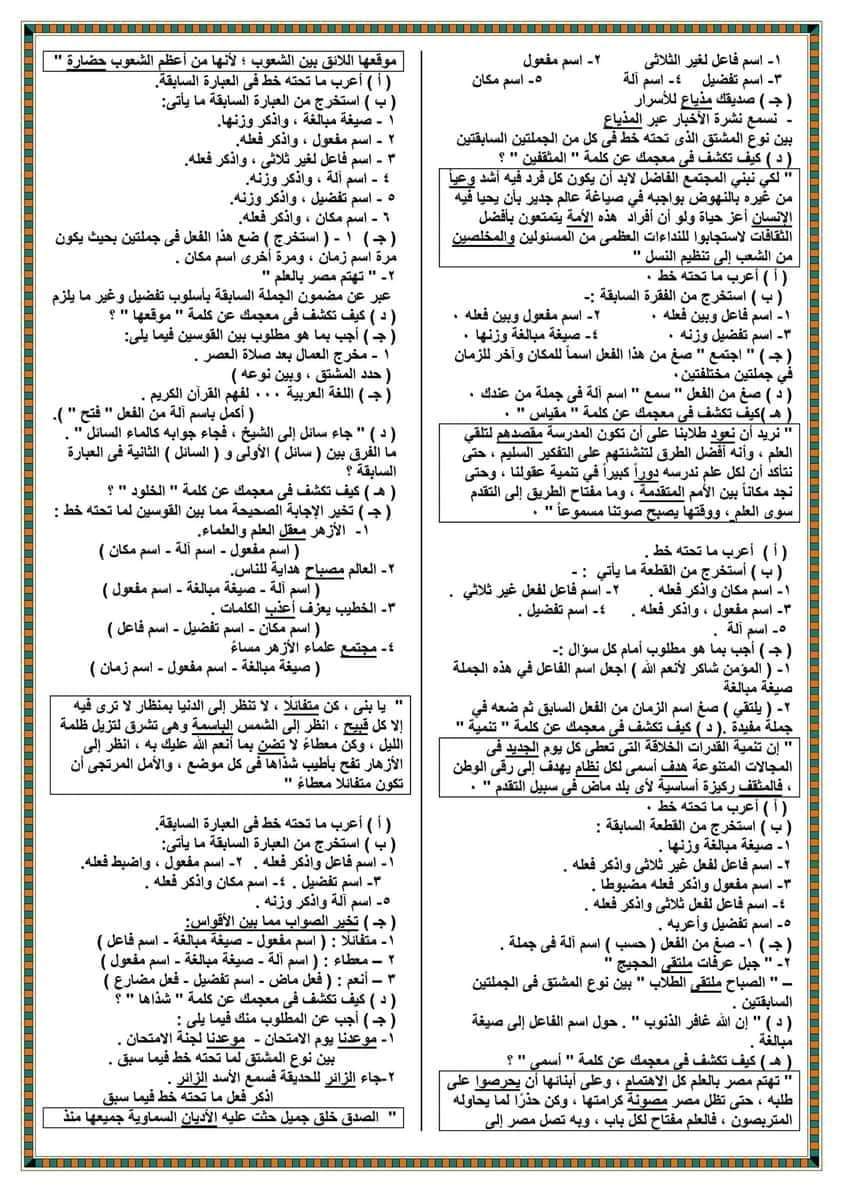 ١- اسم فاعل لغير الثلاثى ٢- اسم مفعول
٣- اسم تفضيل ٤- اسم آلة ٥- اسم مكان
( جـ ) صديقك مذياع للأسرار
- نسمع نشرة الأخبار عبر المذياع
بين نوع المشتق الذى تحته خط فى كل من الجملتين السابقتين
( د ) كيف تكشف فى معجمك عن كلمة " المثقفين " ؟
" لكي نبني المجتمع الفاضل لابد أن يكون كل فرد فيه أشد وعياً
من غيره بالنهوض بواجبه في صياغة عالم جدير بأن يحيا فيه
الإنسان أعز حياة ولو أن أفراد هذه الأمة يتمتعون بأفضل
الثقافات لاستجابوا للنداءات العظمى من المسئولين والمخلصين
من الشعب إلى تنظيم النسل "
( أ ) أعرب ما تحته خط ٠
( ب ) استخرج من الفقرة السابقة :-
١- اسم فاعل وبين فعله ٠ ٢- اسم مفعول وبين فعله ٠
٣- اسم تفضيل وزنه ٠ ٤- صيغة مبالغة وزنها ٠
( جـ ) " اجتمع " صغ من هذا الفعل اسماً للمكان وآخر للزمان
في جملتين مختلفتين٠
( د ) صغ من الفعل " سمع " اسم آلة فى جملة من عندك ٠
( هـ )كيف تكشف فى معجمك عن كلمة " مقياس " ٠
" نريد أن نعود طلابنا على أن تكون المدرسة مقصدهم لتلقي
العلم ، وأنه أفضل الطرق لتنشئتهم على التفكير السليم ، حتى
نتأكد أن لكل علم ندرسه دوراً كبيراً في تنمية عقولنا ، وحتى
نجد مكاناً بين الأمم المتقدمة ، وما مفتاح الطريق إلى التقدم
سوى العلم ، ووقتها يصبح صوتنا مسموعاً " ٠
( أ ) أعرب ما تحته خط .
( ب ) أستخرج من القطعة ما يأتي : -
١- اسم مكان وأذكر فعله . ٢- اسم فاعل لفعل غير ثلاثي .
٣- اسم مفعول ، واذكر فعله . ٤- اسم تفضيل .
٥- اسم آلة .
( جـ ) أجب بما هو مطلوب أمام كل سؤال :-
١- ( المؤمن شاكر لأنعم الله ) اجعل اسم الفاعل في هذه الجملة
صيغة مبالغة
٢- ( يلتقي ) صغ اسم الزمان من الفعل السابق ثم ضعه في
جملة مفيدة .( د ) كيف تكشف فى معجمك عن كلمة " تنمية "
" إن تنمية القدرات الخلاقة التى تعطى كل يوم الجديد فى
المجالات المتنوعة هدف أسمى لكل نظام يهدف إلى رقى الوطن
، فالمثقف ركيزة أساسية لأى بلد ماض فى سبيل التقدم " ٠
( أ ) أعرب ما تحته خط ٠
( ب ) استخرج من القطعة السابقة :
١- صيغة مبالغة وزنها .
٢- اسم فاعل لفعل غير ثلاثى واذكر فعله .
٣- اسم مفعول واذكر فعله مضبوطا .
٤- اسم فاعل لفعل ثلاثى واذكر فعله .
٥- اسم تفضيل وأعربه .
( جـ ) ١- صغ من الفعل ( حسب ) اسم آلة فى جملة .
٢- " جبل عرفات ملتقى الحجيج "
– " الصباح ملتقى الطلاب " بين نوع المشتق فى الجملتين
السابقتين .
( د ) " إن الله غافر الذنوب " . حول اسم الفاعل إلى صيغة
مبالغة .
( هـ ) كيف تكشف فى معجمك عن كلمة " أسمى " ؟
" تهتم مصر بالعلم كل الاهتمام ، وعلى أبنائها أن يحرصوا على
طلبه ، حتى تظل مصر مصونة كرامتها ، وكن حذرًا لما يحاوله
المتربصون ، فالعلم مفتاح لكل باب ، وبه تصل مصر إلى
موقعها اللائق بين الشعوب ؛ لأنها من أعظم الشعوب حضارة "
( أ ) أعرب ما تحته خط فى العبارة السابقة.
( ب ) استخرج من العبارة السابقة ما يأتى:
١ - صيغة مبالغة، واذكر وزنها.
٢ - اسم مفعول، واذكر فعله.
٣ - اسم فاعل لغير ثلاثى ، واذكر فعله.
٤ - اسم آلة ، واذكر وزنه.
٥ - اسم تفضيل، واذكر وزنه.
٦ - اسم مكان ، واذكر فعله.
( جـ ) ١ - ( استخرج ) ضع هذا الفعل فى جملتين بحيث يكون
مرة اسم زمان ، ومرة أخرى اسم مكان .
٢- " تهتم مصر بالعلم "
عبر عن مضمون الجملة السابقة بأسلوب تفضيل وغير ما يلزم
( د ) كيف تكشف فى معجمك عن كلمة " موقعها " ؟
( جـ ) أجب بما هو مطلوب بين القوسين فيما يلى:
١ - مخرج العمال بعد صلاة العصر .
( حدد المشتق ، وبين نوعه )
( جـ ) اللغة العربية ٠٠٠ لفهم القرآن الكريم .
( أكمل باسم آلة من الفعل " فتح " ).
( د ) " جاء سائل إلى الشيخ ، فجاء جوابه كالماء السائل " .
ما الفرق بين ( سائل ) الأولى و ( السائل ) الثانية فى العبارة
السابقة ؟
( هـ ) كيف تكشف فى معجمك عن كلمة " الخلود " ؟
( جـ ) تخير الإجابة الصحيحة مما بين القوسين لما تحته خط :
١- الأزهر معقل العلم والعلماء.
( اسم مفعول - اسم آلة - اسم مكان )
٢- العالم مصباح هداية للناس.
( اسم آلة - صيغة مبالغة - اسم مفعول )
٣- الخطيب يعزف أعذب الكلمات .
( اسم مكان - اسم تفضيل - اسم فاعل )
٤- مجتمع علماء الأزهر مساءً
( صيغة مبالغة - اسم مفعول - اسم زمان )
" يا بنى ، كن متفائلًا ، لا تنظر إلى الدنيا بمنظار لا ترى فيه
إلا كل قبيح ، انظر إلى الشمس الباسمة وهى تشرق لتزيل ظلمة
الليل ، وكن معطاءً لا تضن بما أنعم الله عليك به ، انظر إلى
الأزهار تفح بأطيب شذاها فى كل موضع ، والأمل المرتجى أن
تكون متفائلا معطاءً "
( أ ) أعرب ما تحته خط فى العبارة السابقة.
( ب ) استخرج من العبارة السابقة ما يأتى:
١- اسم فاعل واذكر فعله . ٢- اسم مفعول ، واضبط فعله.
٣- اسم تفضيل . ٤- اسم مكان واذكر فعله .
٥- اسم آلة واذكر وزنه .
( جـ ) تخير الصواب مما بين الأقواس:
١- متفائلًا : ( اسم مفعول - صيغة مبالغة - اسم فاعل )
٢ – معطاء : ( اسم آلة - صيغة مبالغة - اسم مفعول )
٣ – أنعم : ( فعل ماض - اسم تفضيل - فعل مضارع )
( د ) كيف تكشف فى معجمك عن كلمة " شذاها " ؟
( جـ ) أجب عن المطلوب منك فيما يلى :
١- موعدنا يوم الامتحان - موعدنا لجنة الامتحان .
بين نوع المشتق لما تحته خط فيما سبق .
٢-جاء الزائر للحديقة فسمع الأسد الزائر .
اذكر فعل ما تحته خط فيما سبق
" الصدق خلق جميل حثت عليه الأديان السماوية جميعها منذ